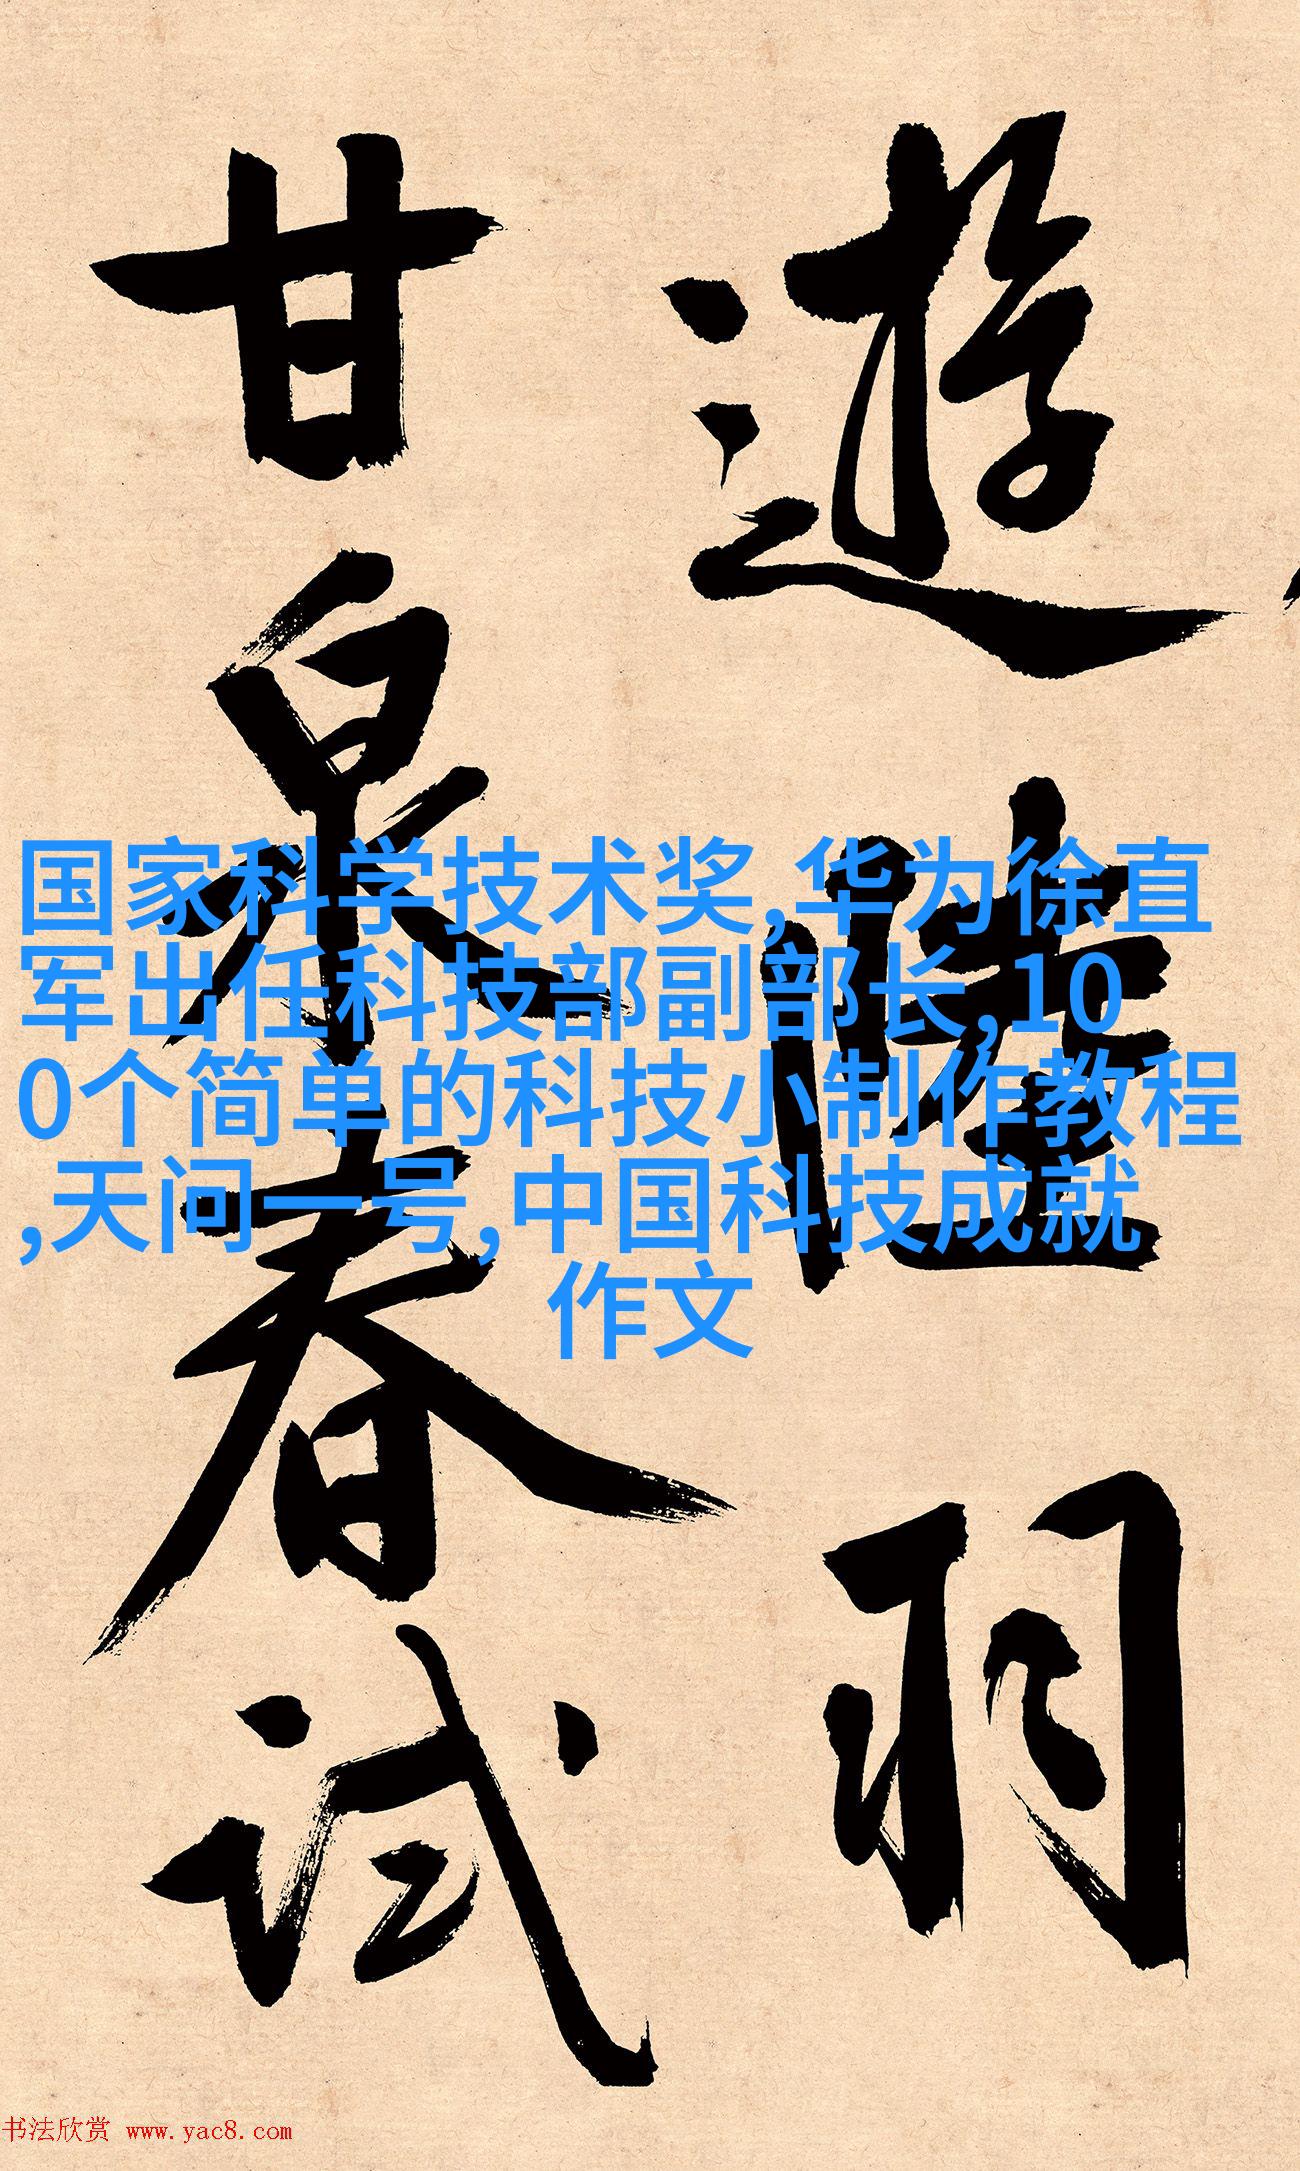 遊陸羽
甘泉春試
国家科学技术奖,华为徐直
军出任科技部副部长,10
0个简单的科技小制作教程
,天问一号,中国科技成就
作文
书法欣赏 www.yac8.com